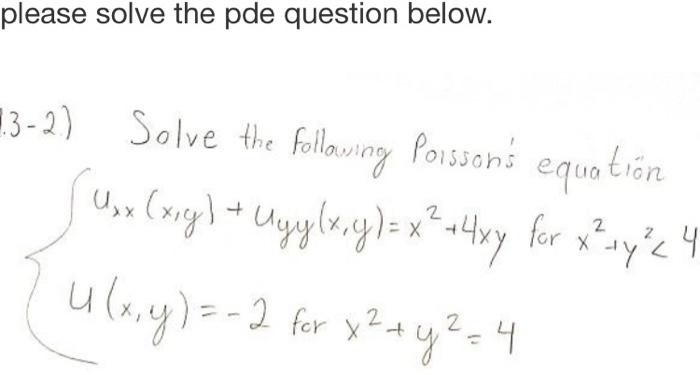 please solve the pde question below.
1.3-2.) Solve the following Poisson's equation
{ Uxx (x,y) + Uyy(x,y) = x² + 4xy for x² + y² < 4
u(x,y) = -2 for x² + y² = 4